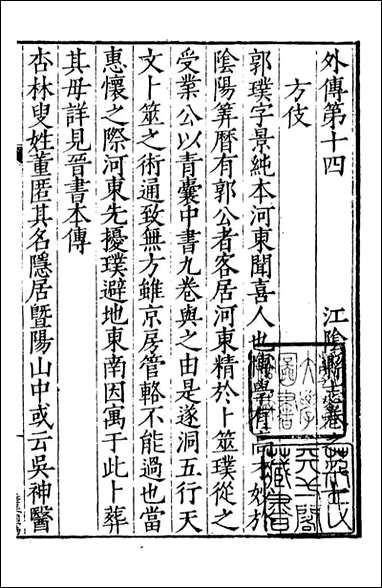 外傳第十四
江陰縣志卷之
方伎
郭璞字景純本河東聞喜人也博學有高才妙於
陰陽筭曆有郭公者客居河東精於卜筮璞從之
受業公以青囊中書九卷與之由是遂洞五行天
文卜筮之術通致無方雖京房管輅不能過也當
惠懷之際河東先擾璞避地東南因寓于此卜葬
其母詳見晉書本傳
杏林叟姓董匿其名隱居暨陽山中或云吳神醫